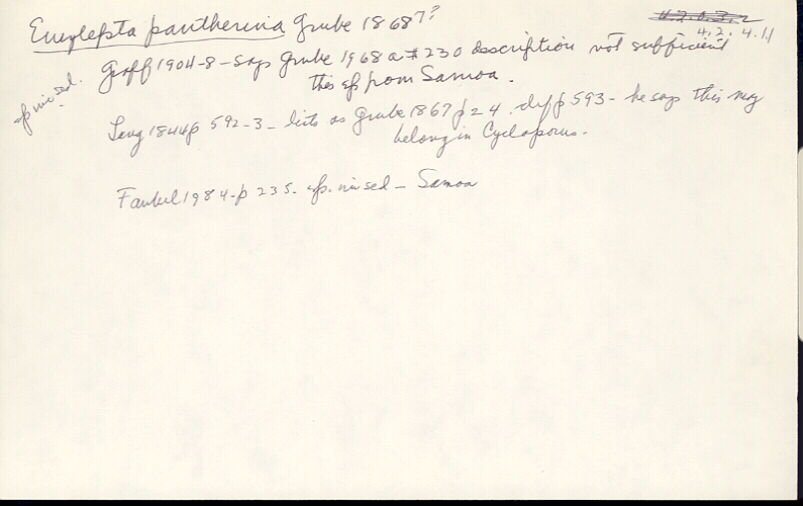 Eurylepta pantherina Grube 1868⁷?
4.2.0.3.2
4.2.4.11
Graff 1904-8 - says Grube 1968 a # 230 description not sufficient
this sp from Samoa.
sp inc sed.
Lang 1844 p 592-3 - lists as Grube 1867 p 24. diff p 593 - he says this may
belong in Cycloporus.
Faubel 1984-p 235. sp. inc sed - Samoa